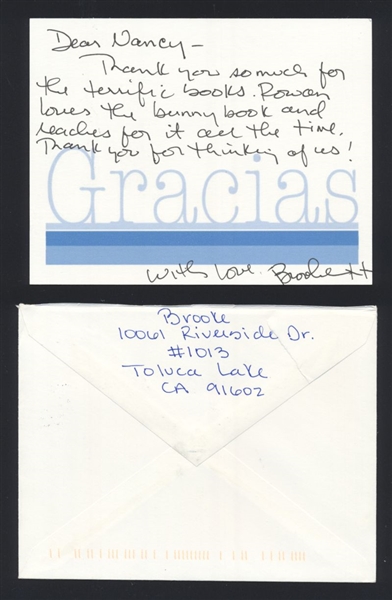 Dear Nancy-
Thank you so much for
the terrific books. Rowan
loves the bunny book and
reaches for it all the time.
Thank you for thinking of us!
Gracias
With Love. Brooke
Brooke
10061 Riverside Dr.
#1013
Toluca Lake
CA 91602